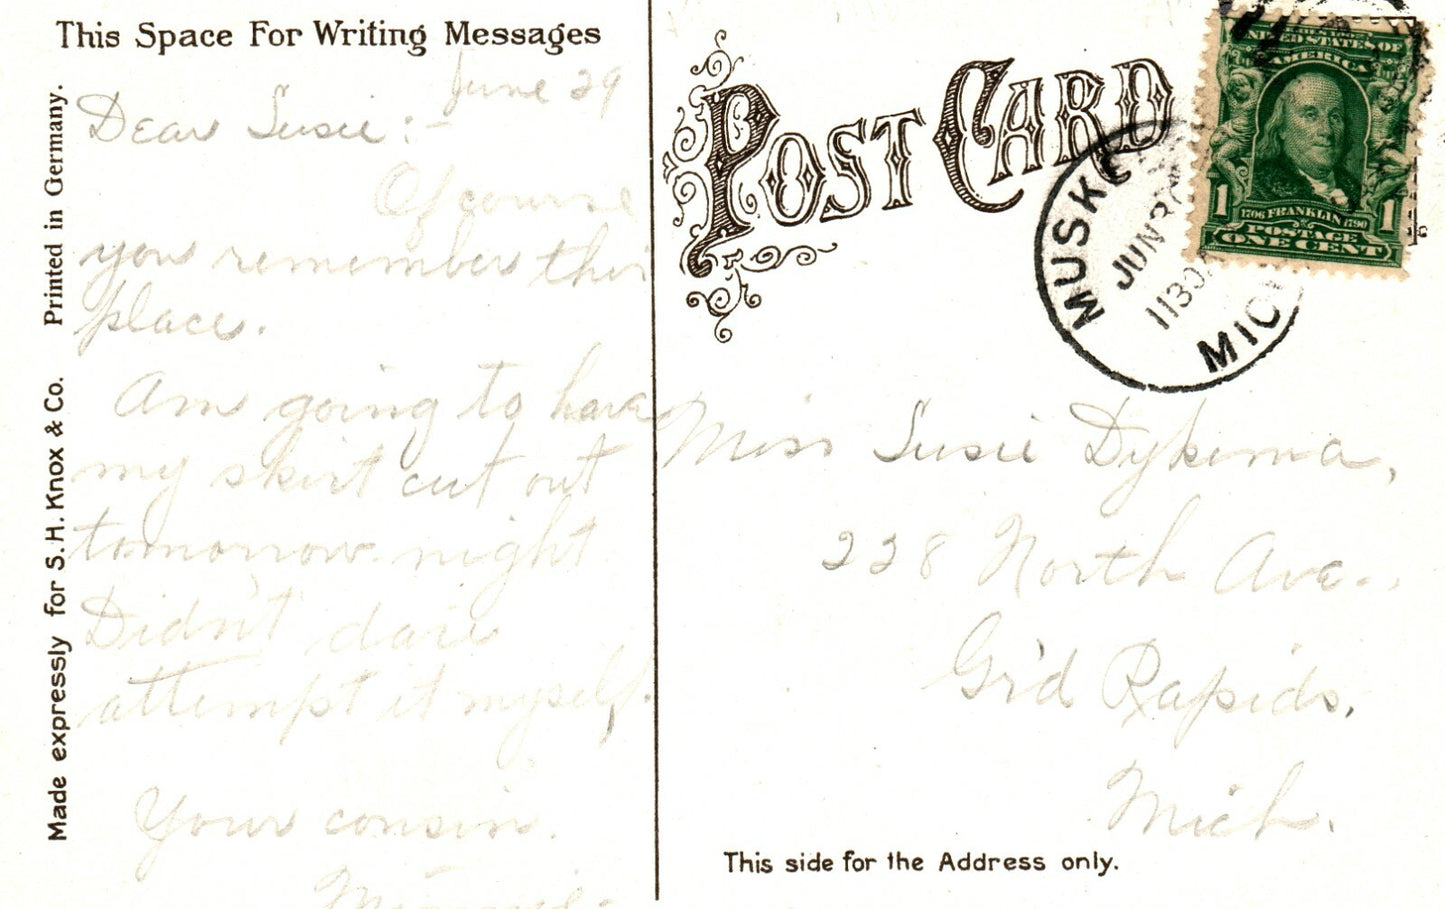 This Space For Writing Messages
June 29
Dear Susie:-
Of course
you remember this
place.
Am going to have
my skirt cut out
tomorrow night
Didn't dare
attempt it myself.
Your cousin.
Minnie.
Printed in Germany.
Made expressly for S.H. Knox & Co.
POST CARD
MUSKE
JUN 30
1130A
MICH
UNITED STATES OF
AMERICA
1706 FRANKLIN 1790
1 1
POSTAGE
ONE CENT
Miss Susie Dykema,
228 North Ave.
Gr'd Rapids,
Mich.
This side for the Address only.